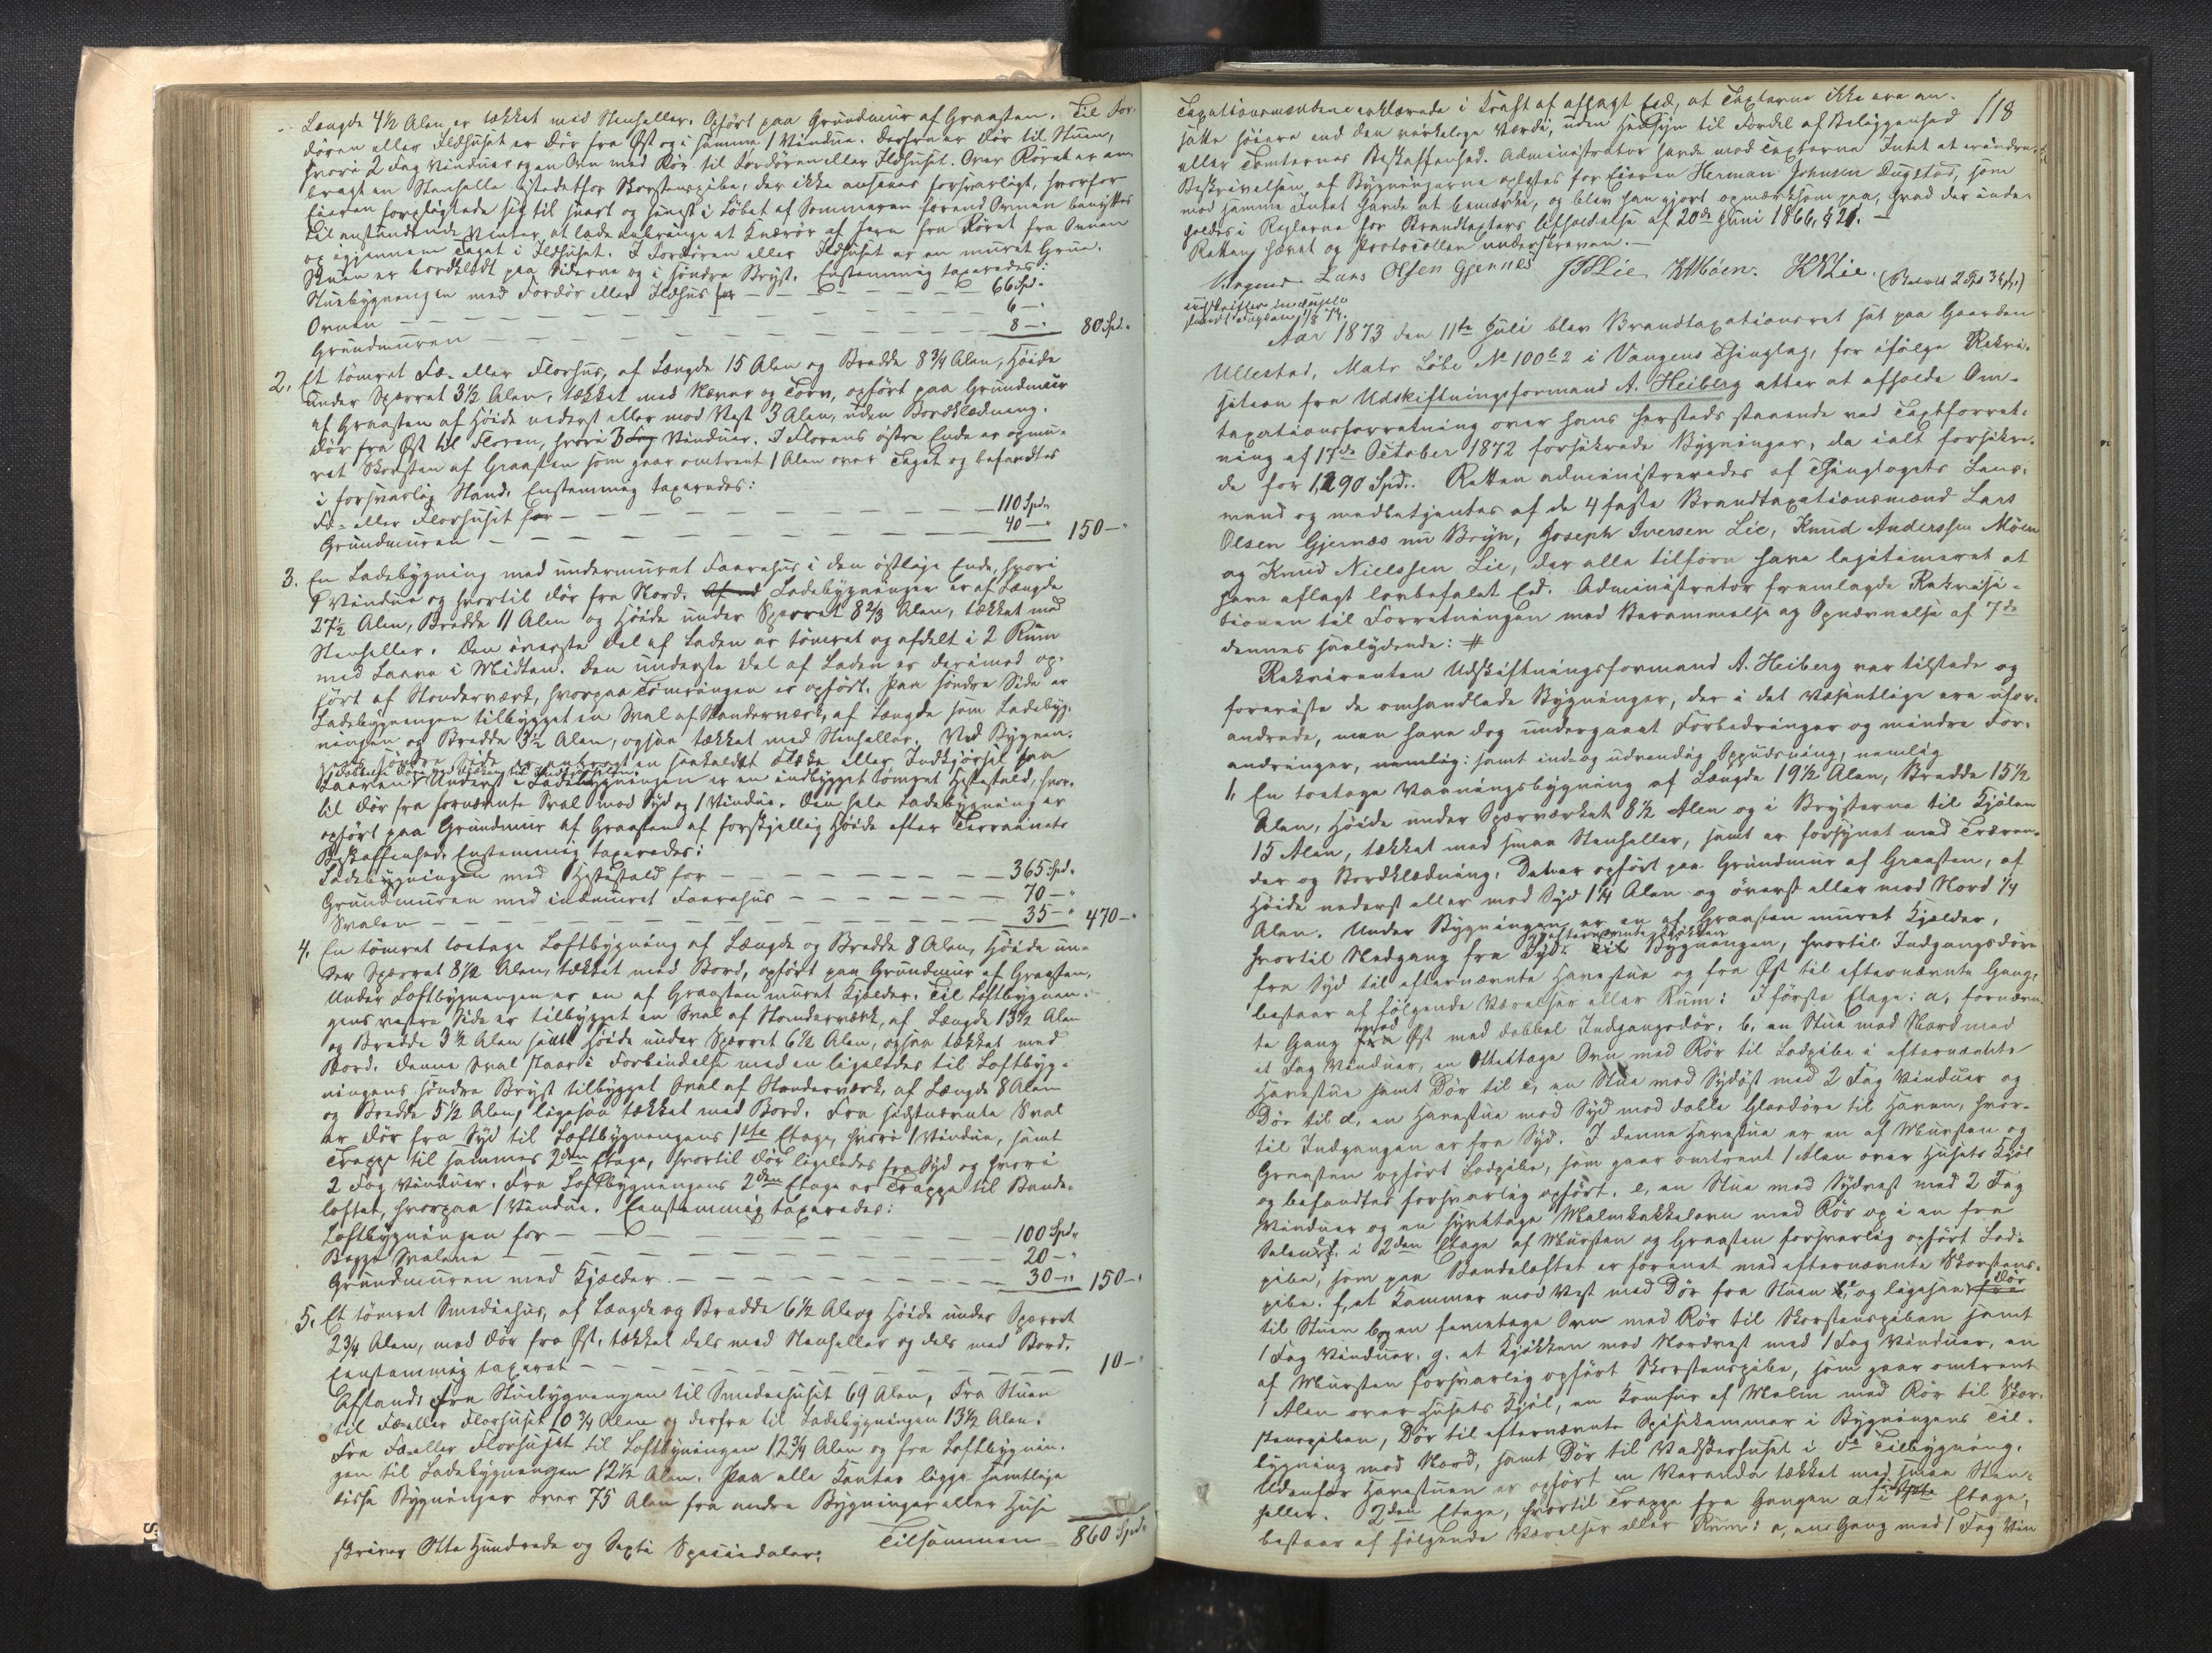 Længde 4½ Alen er tækket med Stenheller. Opført paa Grundmuur af Graasten. Til For-
døren eller Ildhuset er Dør fra Øst og i samme 1 Vindue. Derfra er Dør til Stuen,
hvori 2 Fag Vinduer og en Ovn med Rør til Fordøren eller Ildhuset. Over Røret er an-
bragt en Stenhelle istedetfor Skorstenspibe, der ikke ansees forsvarligt, hvorfor
Eieren forpligtede sig til snart og senest i Løbet af Sommeren forend Ovnen benyttes
til anstundende Vinter, at lade anbringe et Knærør af Jern fra Røret fra Ovnen
op igjennem Taget i Ildhuset. I Fordøren eller Ildhuset er en muret Grue.
Stuen er bordklædt paa Siderne og i søndre Bryst. Enstemmig taxeredes:
Stuebygningen med Fordør eller Ildhus for — — — — 66 Spd.
Ovnen — — — — — 6 —"
Grundmuren — — — — — 8 —" 80 Spd."
2. Et tømret Fæ- eller Florhus, af Længde 15 Alen og Bredde 8¾ Alen, Høide
under Sperret 3½ Alen, tækket med Næver og Torv, opført paa Grundmuur
af Graasten af Høide nederst eller mod Vest 3 Alen, uden Bordklædning.
Dør fra Øst til Floren, hvori 3 Fag Vinduer. I Florens østre Ende er opmu-
ret Skorsten af Graasten som gaar omtrent 1 Alen over Taget og befandtes
i forsvarlig Stand. Enstemmig taxeredes:
Fæ- eller Florhuset for — — — — — 110 Spd."
Grundmuren — — — — — 40 —" 150 —"
3. En Ladebygning med undermuret Faarehus i den østlige Ende, hvori
1 Vindue og hvortil Dør fra Nord. Ladebygningen er af Længde
27½ Alen, Bredde 11 Alen og Høide under Sperret 8⅔ Alen, tækket med
Stenheller. Den øverste Del af Laden er tømret og afdelt i 2 Rum
med Laave i Midten. Den underste Del af Laden er derimod op-
ført af Stenderværk, hvorpaa Tømringen er opført. Paa søndre Side er
Ladebygningen tilbygget en Sval af Standerværk, af Længde som Ladebyg-
ningen og Bredde 3½ Alen, ogsaa tækket med Stenheller. Ved Bygnin-
gens søndre Side er anbragt en saakaldt Kleke eller Indkjørsel paa
Laaven. Underst i Ladebygningen er en indbygget tømret Hestestald, hvor-
til Dør fra fornævnte Sval mod Syd og 1 Vindue. Den hele Ladebygning er
opført paa Grundmuur af Graasten af forskjellig Høide efter Terrainets
Beskaffenhed. Enstemmig taxeredes:
Ladebygningen med Hestestald for — — — — — 365 Spd."
Grundmuren med indmuret Faarehus — — — — 70 —"
Svalen — — — — — 35 —" 470 —"
4. En tømret toetages Loftbygning af Længde og Bredde 8 Alen, Høide un-
der Sperret 8½ Alen, tækket med Bord, opført paa Grundmuur af Graasten.
Under Loftbygningen er en af Graasten muret Kjælder. Til Loftbygnin-
gens vestre Side er tilbygget en Sval af Standerværk, af Længde 13½ Alen
og Bredde 3½ Alen samt Høide under Sperret 6½ Alen, ogsaa tækket med
Bord. Denne Sval staar i Forbindelse med en ligeledes til Loftbyg-
ningens søndre Bryst tilbygget Sval af Standerværk, af Længde 8 Alen
og Bredde 5½ Alen, ligesaa tækket med Bord. Fra sidstnævnte Sval
er Dør fra Syd til Loftbygningens 1ste Etage, hvori 1 Vindue, samt
Trappe til sammes 2den Etage, hvortil Dør ligeledes fra Syd og hvori
2 Fag Vinduer. Fra Loftbygningens 2den Etage er Trappe til Bande-
loftet, hvorpaa 1 Vindue. Eenstemmig taxeredes:
Loftbygningen for — — — — — 100 Spd."
Begge Svalene — — — — — 20 —"
Grundmuren med Kjælder — — — — — 30 —" 150 —"
5. Et tømret Smediehus, af Længde og Bredde 6½ Alen og Høide under Sperret
2¾ Alen, med Dør fra Øst, tækket dels med Stenheller og dels med Bord.
Eenstemmig taxeret — — — — — 10 —"
Afstand: fra Stuebygningen til Smediehuset 69 Alen, Fra Stuen
til Fæ- eller Florhuset 10¾ Alen og derfra til Ladebygningen 13½ Alen.
Fra Fæ- eller Florhuset til Loftbygningen 12¾ Alen og fra Loftbygnin-
gen til Ladebygningen 12½ Alen. Paa alle Kanter ligge samtlige
disse Bygninger over 75 Alen fra andre Bygninger eller Huse
Tilsammen = 860 Spd."
skriver Otte Hundrede og Sexti Speciedaler.
118
Taxationsmændene erklærede i Kraft af aflagt Eed, at Taxterne ikke ere an-
satte høiere end den virkelige Værdi, uden Hensyn til Fordel af Beliggenhed
eller Tomternes Beskaffenhed. Administrator havde mod Taxterne Intet at erindre.
Beskrivelsen af Bygningerne oplæstes for Eieren Herman Johnsen Dugstad, som
mod samme Intet havde at bemærke, og blev han gjort opmærksom paa, hvad der inde-
holdes i Reglerne for Brandtaxters Afholdelse af 20de Juni 1866, § 21. —
Retten hævet og Protocollen underskreven. —
Magnus Lars Olsen Gjernes JILie KAMöen. KNLie. (Betalt 2 Spd 34 ß.)
Aar 1873 den 11te Juli blev Brandtaxationsret sat paa Gaarden
Ullestad, Matr. Løbe No 100 b 2 i Vangens Thinglag, for ifølge Rekvi-
sition fra Udskiftningsformand A. Heiberg atter at afholde Om-
taxationsforretning over hans herstedsstaaende ved Taxtforret-
ning af 17de October 1872 forsikrede Bygninger, da ialt forsikre-
de for 1,290 Spd. Retten administreredes af Thinglagets Lens-
mand og medbetjentes af de 4 faste Brandtaxationsmænd Lars
Olsen Gjernæs nu Bryn, Joseph Iversen Lie, Knud Anderssen Möen
og Knud Nielssen Lie, der alle tilforn have legitimeret at
have aflagt lovbefalet Ed. Administrator fremlagde Rekvisi-
tionen til Forretningen med Berammelse og Opnævnelse af 7de
dennes saalydende: #
Rekvirenten Udskiftningsformand A. Heiberg var tilstede og
foreviste de omhandlede Bygninger, der i det Væsentlige ere ufor-
andrede, men have dog undergaaet Forbedringer og mindre For-
andringer, nemlig: samt ind- og udvendig Oppudsning, nemlig
1. En toetages Vaaningsbygning af Længde 19½ Alen, Bredde 15½
Alen, Høide under Sperværket 8½ Alen og i Brysterne til Kjølen
15 Alen, tækket med smaa Stenheller, samt er forsynet med Træren-
der og Bordklædning. Den er opført paa Grundmuur af Graasten, af
Høide nederst eller mod Syd 1¼ Alen og øverst eller mod Nord ¼
Alen. Under Bygningen er en af Graasten muret Kjælder,
hvortil Nedgang fra Syd. Til Bygningen, hvortil Indgangsdøre
fra Syd til efternævnte Havestue og fra Øst til efternævnte Gang,
bestaar af følgende Værelser eller Rum: I første Etage: a, fornævn-
te Gang mod Øst med dobbel Indgangsdør. b, en Stue mod Nord med
et Fag Vinduer, en Ottetages Ovn med Rør til Ladpibe i efternævnte
Havestue samt Dør til c, en Stue mod Sydøst med 2 Fag Vinduer og
Dør til d, en Havestue mod Syd med doble Glasdøre til Haven, hvor-
til Indgangen er fra Syd. I denne Havestue er en af Mursten og
Graasten opført Ladpibe, som gaar omtrent 1 Alen over Husets Kjøl
og befandtes forsvarlig opført. e, en Stue mod Sydvest med 2 Fag
Vinduer og en syvetages Malmkakkelovn med Rør op i en fra
Salen i 2den Etage af Mursten og Graasten forsvarlig opført Lad-
pibe, som paa Bandeloftet er forenet med efternævnte Skorstens-
pibe. f, et Kammer mod Vest med Dør fra Stuen e, og ligesaa Dør
til Stuen b, og en femetages Ovn med Rør til Skorstenspiben samt
1 Fag Vinduer. g. et Kjøkken mod Nordvest med 1 Fag Vinduer, en
af Mursten forsvarlig opført Skorstenspibe, som gaar omtrent
1 Alen over Husets Kjøl, en Komfur af Malm med Rør til Skor-
stenspiben, Dør til efternævnte Spisekammer i Bygningens Til-
bygning mod Nord, samt Dør til Vadskerhuset i do Tilbygning.
Udenfor Havestuen er opført en Veranda tækket med smaa Sten-
heller. 2den Etage, hvortil Trappe fra Gangen a, i 1ste Etage,
bestaar af følgende Værelser eller Rum: a, en Gang med 1 Fag Vin